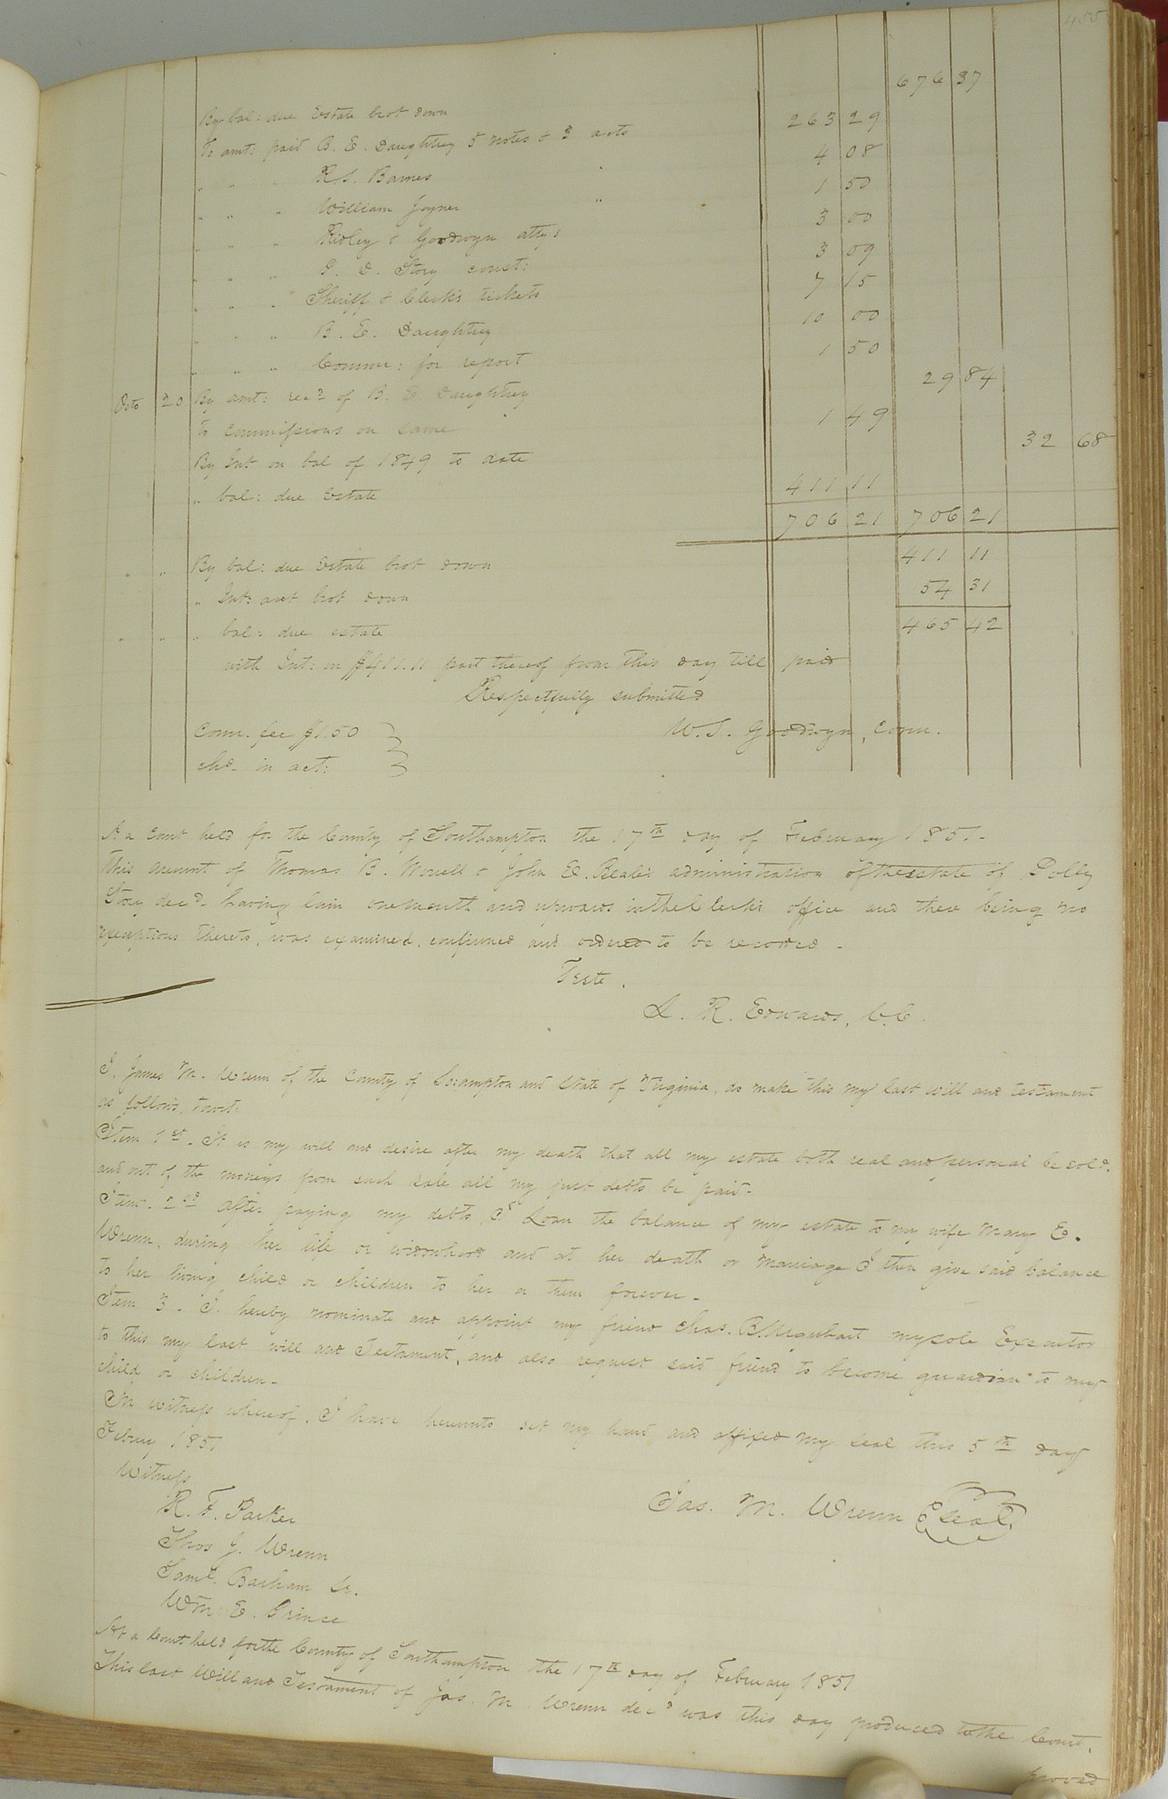 455
676 37
By bal: due Estate brot down
To amt: paid B. E. Daughtrey 5 notes & 3 accts 263 29
" " " R. S. Barnes " 4 08
" " " William Joyner " 1 50
" " " Ridley & Goodwyn attys 3 00
" " " D. Story const: 3 09
" " " Sheriff & Clerk's tickets 7 15
" " " B. E. Daughtrey 10 00
" " " Commr: for report 1 50
Octo 20 By amt: recd of B. E. Daughtrey 29 84
To commissions on same 1 49
By Int on bal of 1849 to date 32 68
" bal: due Estate 411 11
706 21 706 21
" " By bal: due Estate brot down 411 11
" Int: acct brot down 54 31
" " " bal: due estate 465 42
with Int: on $411.11 part thereof from this day till paid
Respectfully submitted
Comr. fee $1.50 } W. S. Goodwyn, Comr.
chd. in act: }
At a Court held for the County of Southampton the 17th day of February 1851.
This account of Thomas B. Worrell & John E. Beale's administration of the estate of Polly
Story decd. having lain one month and upwards in the Clerk's office and there being no
exceptions thereto, was examined, confirmed and ordered to be recorded.
Teste.
L. R. Edwards, C.C.
I. James M. Wrenn of the County of Soampton and State of Virginia, do make this my last will and testament
as follows, towit:
Item 1st. It is my will and desire after my death that all my estate both real and personal be sold.
and out of the moneys from such sale all my just debts be paid.
Item. 2nd After paying my debts, I Loan the balance of my estate to my wife Mary E.
Wrenn, during her life or widowhood and at her death or marriage I then give said balance
to her living child or children to her or them forever.
Item 3. I. hereby nominate and appoint my friend Chas. B. Urquhart my sole Executor
to this my last will and Testament, and also request said friend to become guardian to my
child or children.
In witness whereof, I have hereunto set my hand, and affixed my seal this 5th day
Febrey 1851
Witness Jas. M. Wrenn {Seal}
R. F. Parker
Thos J. Wrenn
Saml. Barham Sr.
Wm. E. Prince
At a Court held for the County of Southampton the 17th day of February 1851
This last Will and Testament of Jas. M. Wrenn decd was this day produced to the Court.
proved